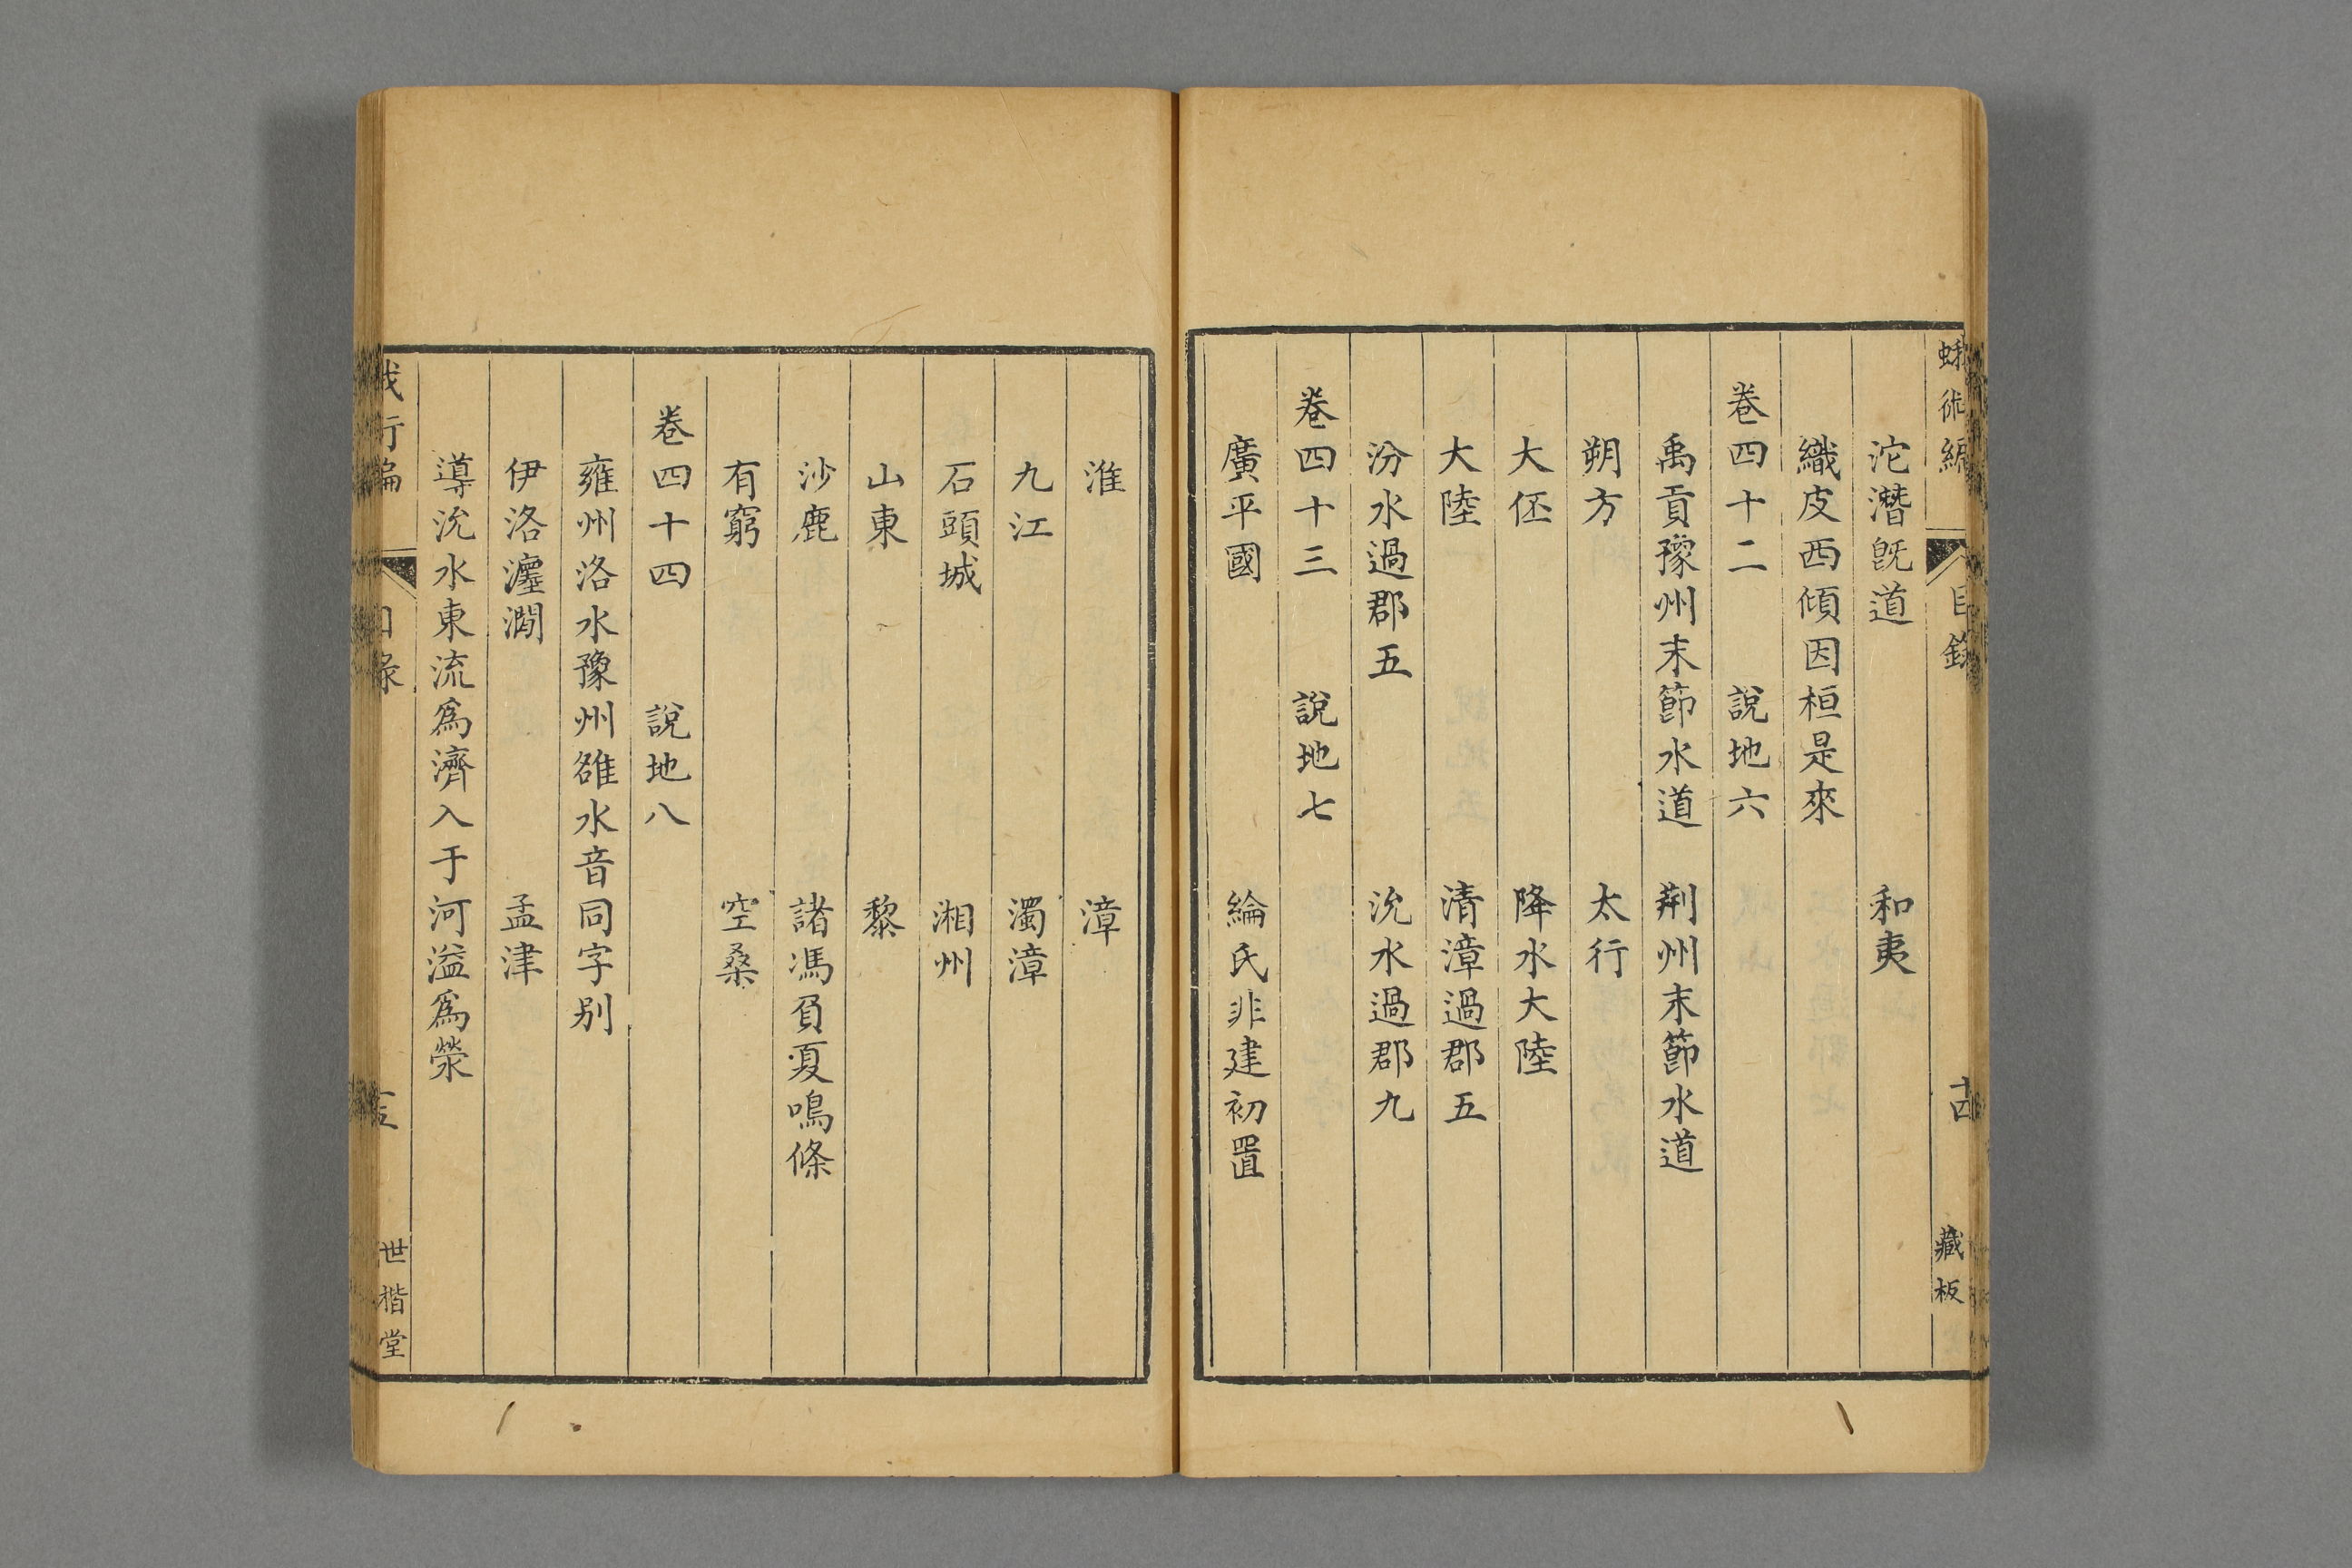 蛾術編 目錄 十四 藏板
沱潛既道 和夷
織皮西傾因桓是來
卷四十二 說地六
禹貢豫州末節水道 荆州末節水道
朔方 太行
大伾 降水大陸
大陸 清漳過郡五
汾水過郡五 沇水過郡九
卷四十三 說地七
廣平國 綸氏非建初置
淮 漳
九江 濁漳
石頭城 湘州
山東 黎
沙鹿 諸馮負夏鳴條
有窮 空桑
卷四十四 說地八
雍州洛水豫州雒水音同字别
伊洛瀍澗 孟津
導沇水東流爲濟入于河溢爲滎
世楷堂